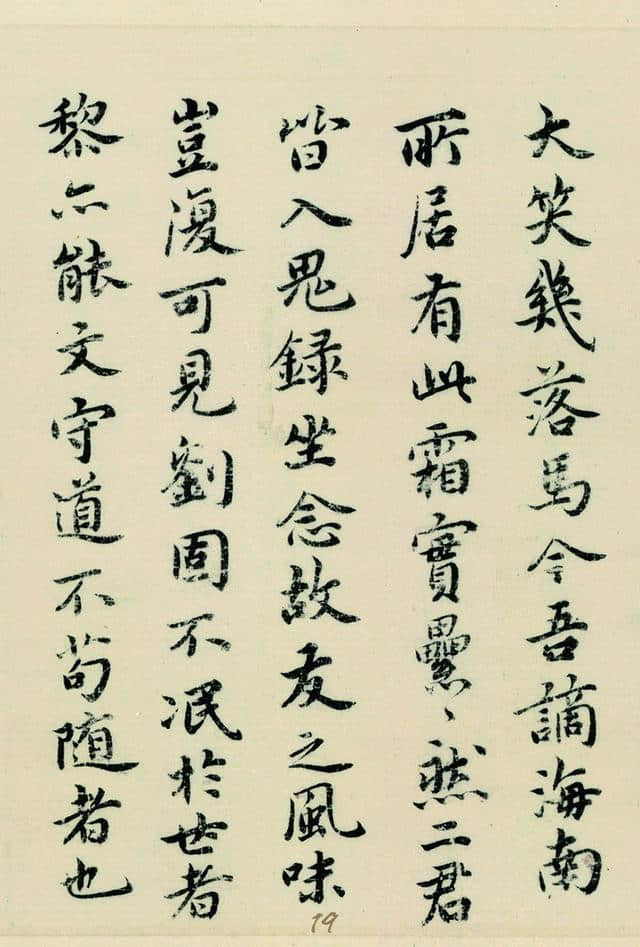 大笑幾落馬今吾謫海南
所居有此霜實纍〻然二君
皆入鬼録坐念故友之風味
豈復可見劉固不泯於世者
黎亦能文守道不苟随者也
19